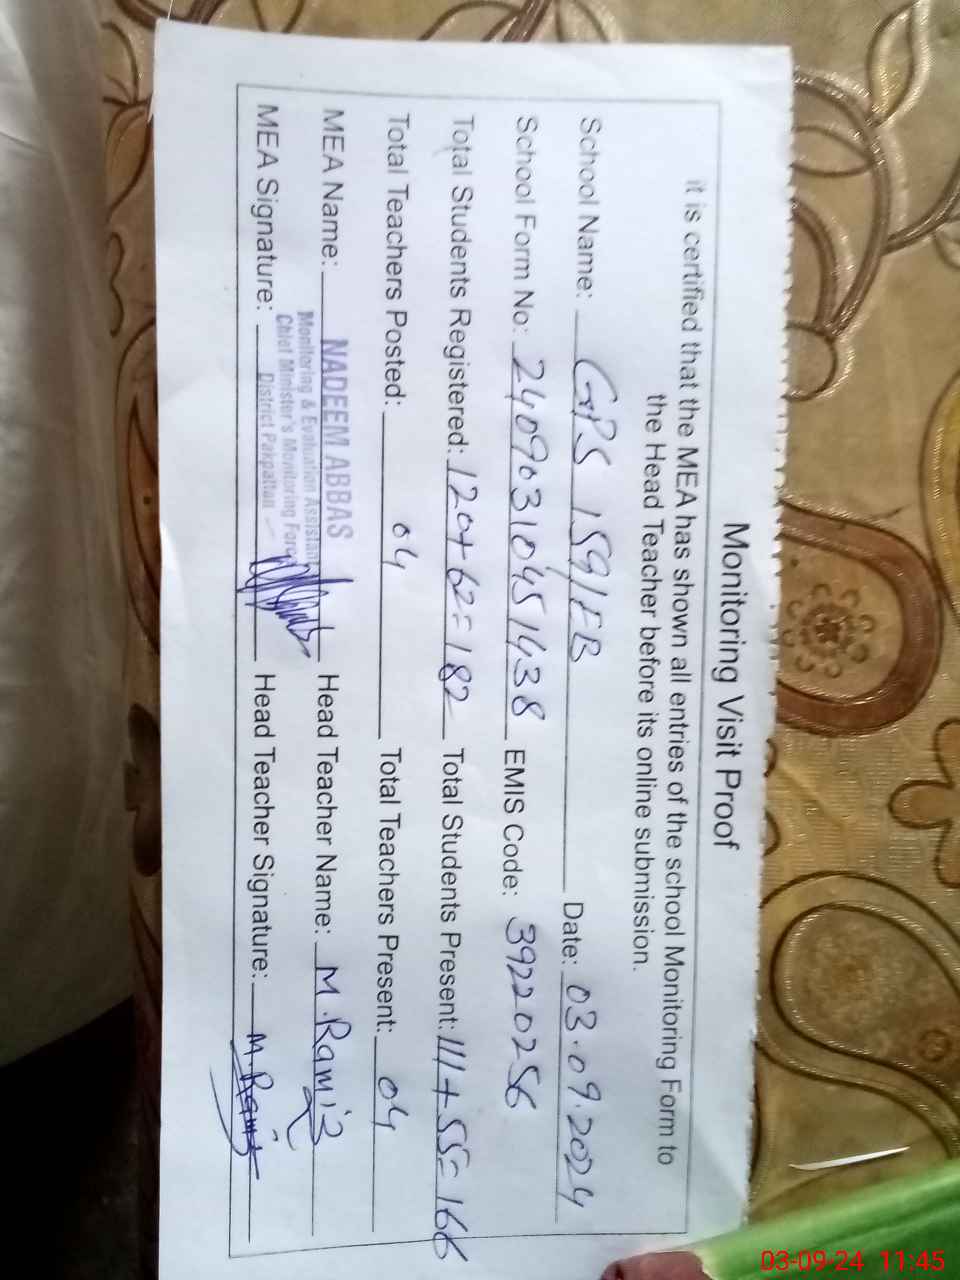 Monitoring Visit Proof
it is certified that the MEA has shown all entries of the school Monitoring Form to
the Head Teacher before its online submission.
School Name: GPS 159/EB Date: 03.09.2024
School Form No: 24090310451438 EMIS Code: 39220256
Total Students Registered: 120+62=182 Total Students Present: 111+55=166
Total Teachers Posted: 04 Total Teachers Present: 04
MEA Name: NADEEM ABBAS Head Teacher Name: M.Ramiz
Monitoring & Evaluation Assistant
Chief Minister's Monitoring Force
District Pakpattan
MEA Signature: Head Teacher Signature: M.Ramiz
03-09-24 11:45